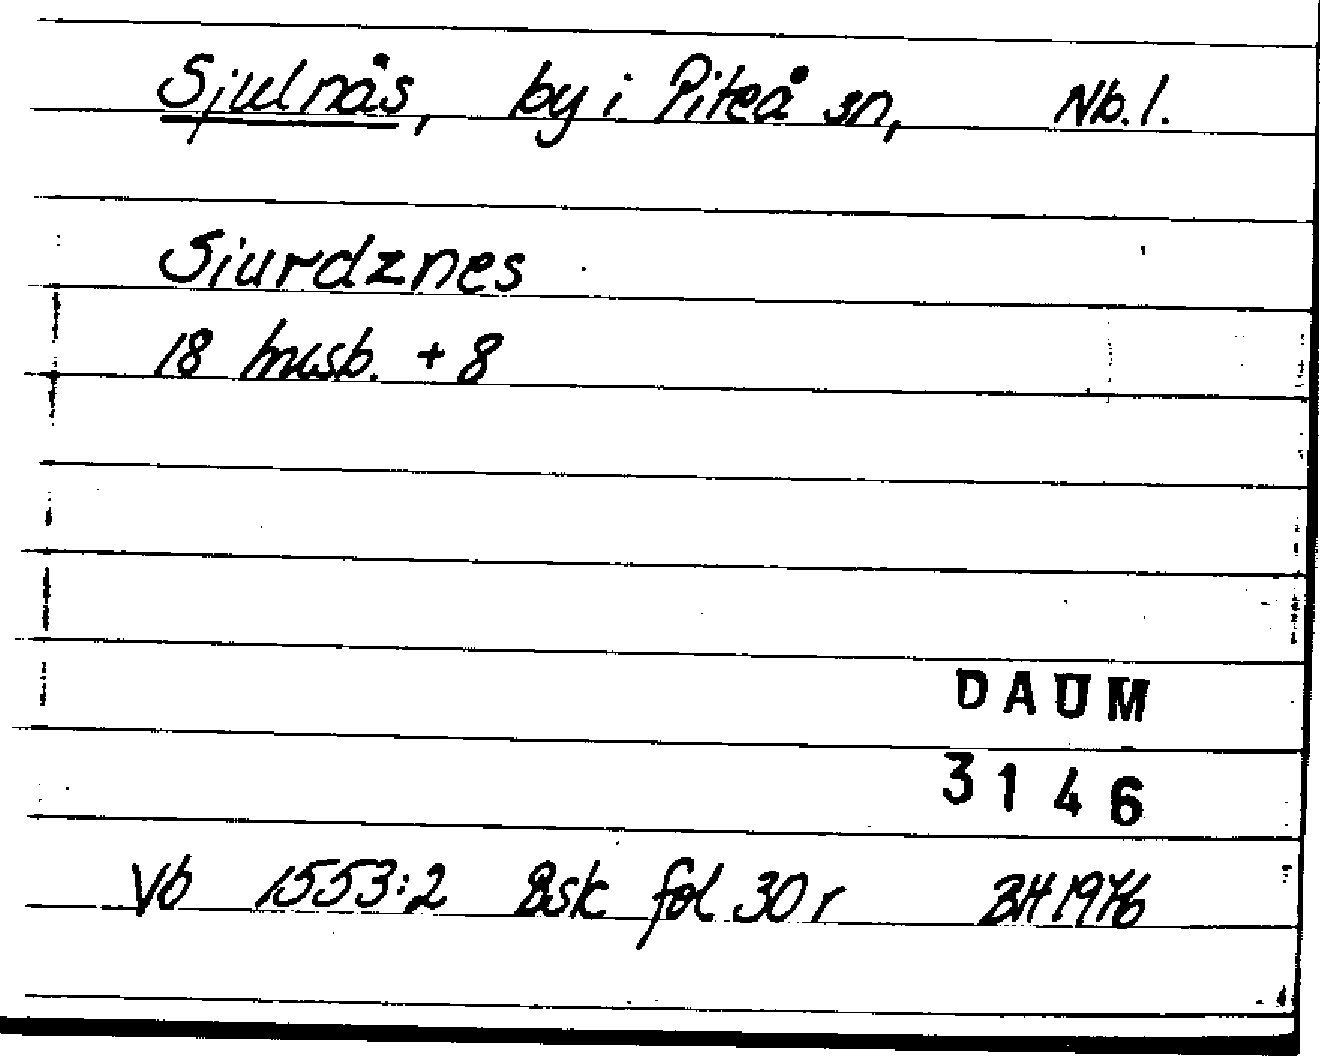 Sjulnäs, by i Piteå sn, Nb. l.
Siurdznes
18 husb. + 8
DAUM
3146
Vb 1553:2 Bsk fol 30 r BH 1976